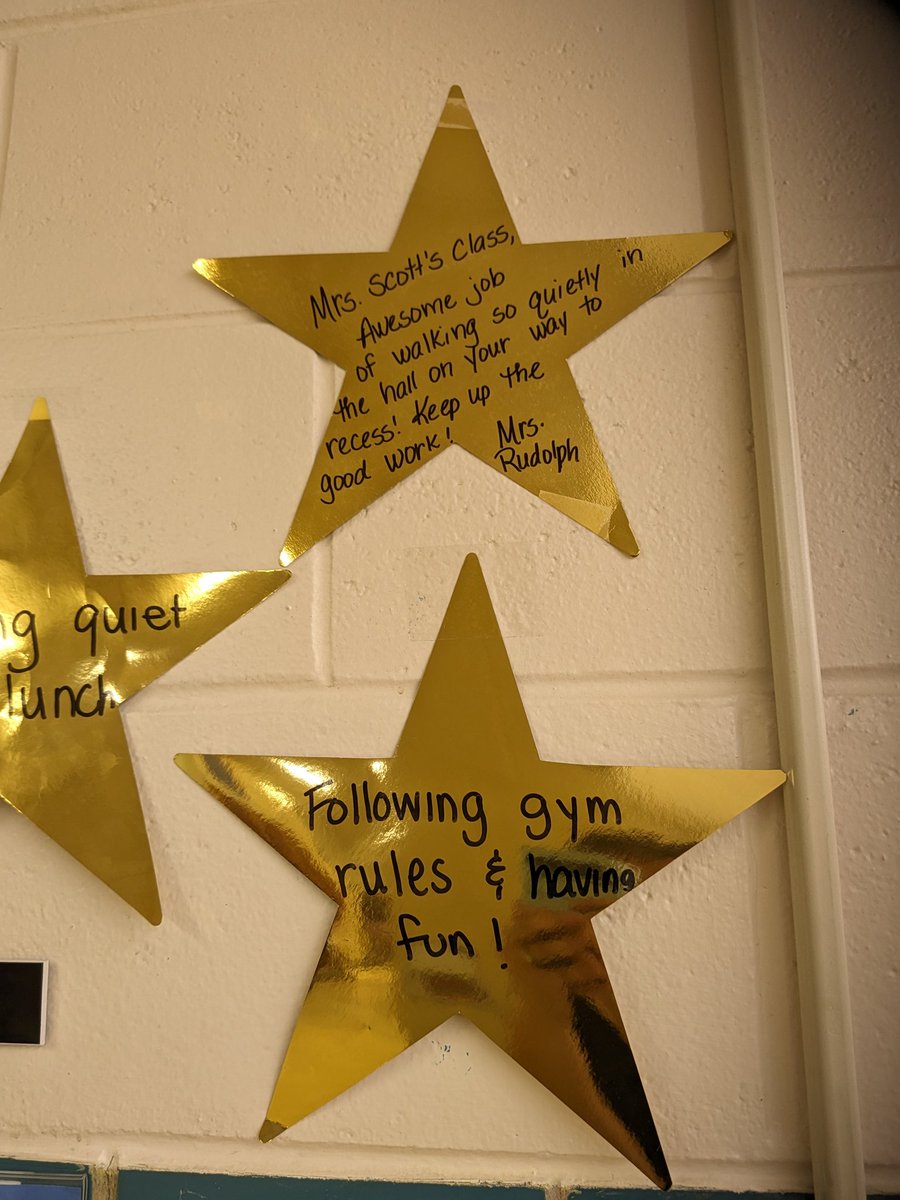 Mrs. Scott's Class,
Awesome job
of walking so quietly in
the hall on your way to
recess! Keep up the
good work!
Mrs.
Rudolph
quiet
lunch
Following gym
rules & having
fun!